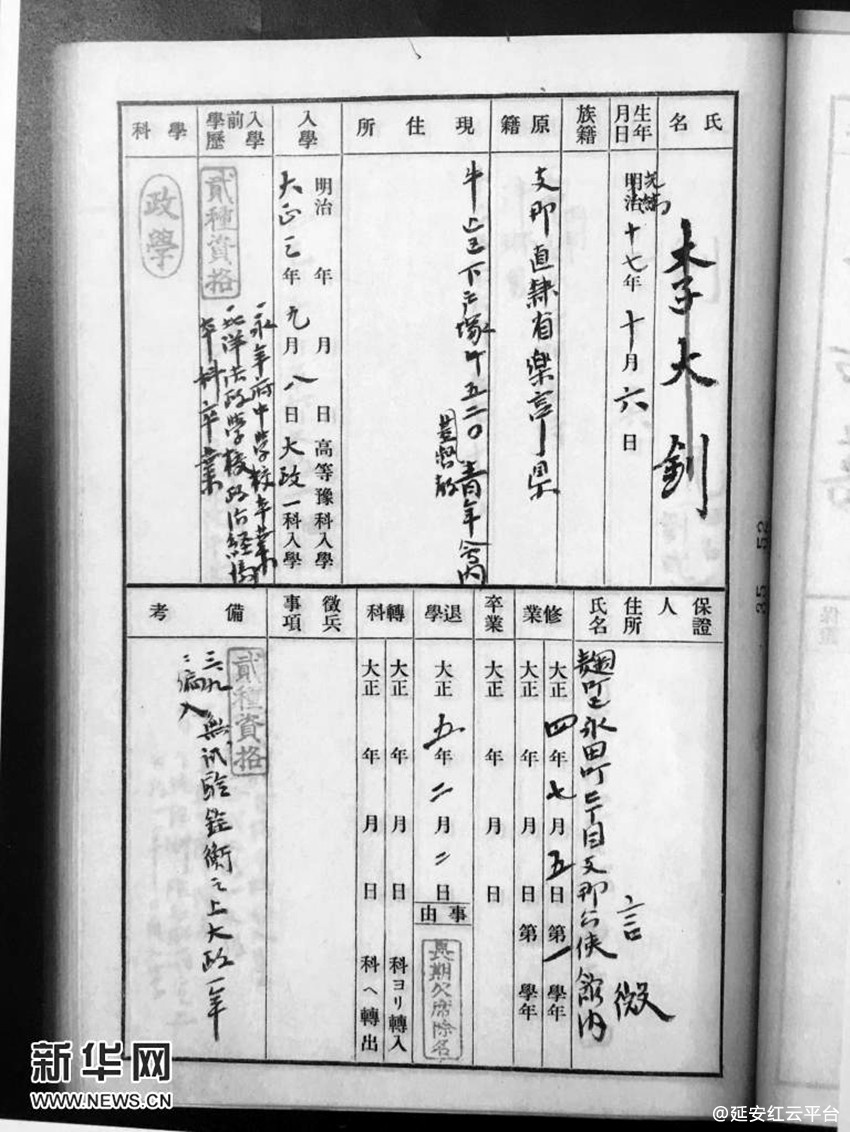 氏名
李大釗
生年月日
光緒
明治十七年十月六日
族籍
原籍
支那直隷省楽亭県
現住所
牛込区下戸塚町五二〇
基督教青年会内
入學
明治 年 月 日高等豫科入學
大正三年九月八日大政一科入學
入學前學歷
貳種資格
一、永年府中学校卒業
一、北洋法政学校政治経済
本科卒業
學科
政學
保證人住所氏名
麹町区永田町二丁目支那公使館内
言微
修業
大正四年七月五日第一學年
大正 年 月 日第 學年
卒業
大正 年 月 日
退學
大正五年二月二日
事由
長期欠席除名
轉科
大正 年 月 日 科ヨリ轉入
大正 年 月 日 科ヘ轉出
徵兵事項
備考
貳種資格
三、九、無試験銓衡之上大政一年
ニ編入
35 52
保證
新华网
WWW.NEWS.CN
@延安红云平台